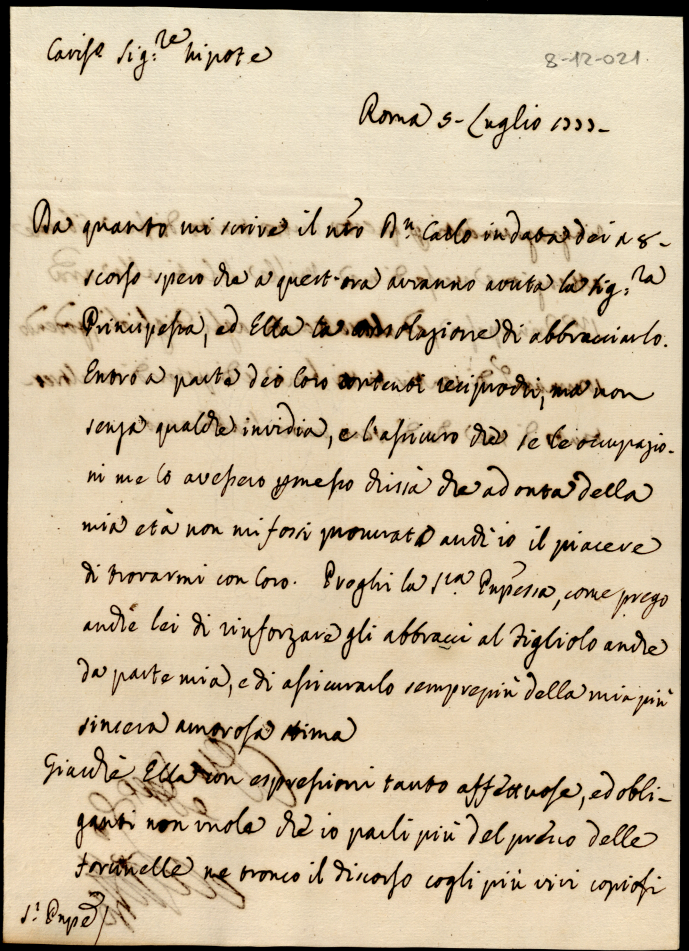 Cariss.o Sig.re Nipote
8-12-021.
Roma 5- Luglio 1777-
Da quanto mi scrive il nr̃o Dn Carlo in data dei 28-
scorso spero che a quest'ora avranno avuta la Sig.ra
Principessa, ed Ella la consolazione di abbracciarlo.
Entro a parte dei loro contenti reciprochi, ma non
senza qualche invidia, e l'assicuro che se le occupazio-
ni me lo avessero pmesso chissà che ad onta della
mia età non mi fossi procurato anch'io il piacere
di trovarmi con loro. Preghi la S.ra Pnpessa, come prego
anche lei di rinforzare gli abbracci al Figliolo anche
da parte mia, e di assicurarlo semprepiù della mia più
sincera amorosa stima
Giacchè Ella con espressioni tanto affettuose, ed obli-
ganti non vuole che io parli più del prezzo delle
ne tronco il discorso cogli più vivi copiosi
S.r Pnpe